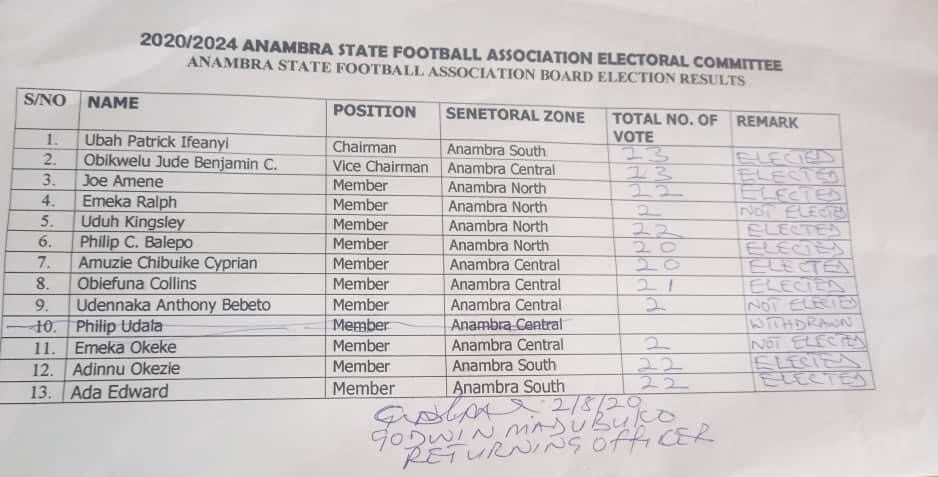 2020/2024 ANAMBRA STATE FOOTBALL ASSOCIATION ELECTORAL COMMITTEE
ANAMBRA STATE FOOTBALL ASSOCIATION BOARD ELECTION RESULTS
S/NO NAME POSITION SENETORAL ZONE TOTAL NO. OF VOTE REMARK
1. Ubah Patrick Ifeanyi Chairman Anambra South 23 ELECTED
2. Obikwelu Jude Benjamin C. Vice Chairman Anambra Central 23 ELECTED
3. Joe Amene Member Anambra North 22 ELECTED
4. Emeka Ralph Member Anambra North 2 NOT ELECTED
5. Uduh Kingsley Member Anambra North 22 ELECTED
6. Philip C. Balepo Member Anambra North 20 ELECTED
7. Amuzie Chibuike Cyprian Member Anambra Central 20 ELECTED
8. Obiefuna Collins Member Anambra Central 21 ELECTED
9. Udennaka Anthony Bebeto Member Anambra Central 2 NOT ELECTED
10. Philip Udala Member Anambra Central WITHDRAWN
11. Emeka Okeke Member Anambra Central 2 NOT ELECTED
12. Adinnu Okezie Member Anambra South 22 ELECTED
13. Ada Edward Member Anambra South 22 ELECTED
2/8/20
GODWIN MADUBUKO
RETURNING OFFICER